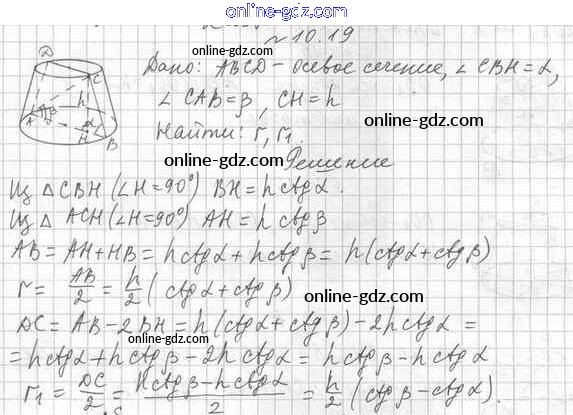 online-gdz.com
№ 10.19
online-gdz.com
Дано: ABCD - осевое сечение, ∠ CBH = α,
∠ CAB = β, CH = h
online-gdz.com
Найти: r, r₁
online-gdz.com
Решение
D
C
h
β
α
A
H
B
Из △ CBH (∠H = 90°) BH = h ctg α.
online-gdz.com
Из △ ACH (∠H = 90°) AH = h ctg β
AB = AH + HB = h ctg α + h ctg β = h (ctg α + ctg β)
r = AB/2 = h/2 (ctg α + ctg β)
online-gdz.com
DC = AB - 2BH = h (ctg α + ctg β) - 2h ctg α =
= h ctg α + h ctg β - 2h ctg α = h ctg β - h ctg α
r₁ = DC/2 = (h ctg β - h ctg α)/2 = h/2 (ctg β - ctg α).
online-gdz.com